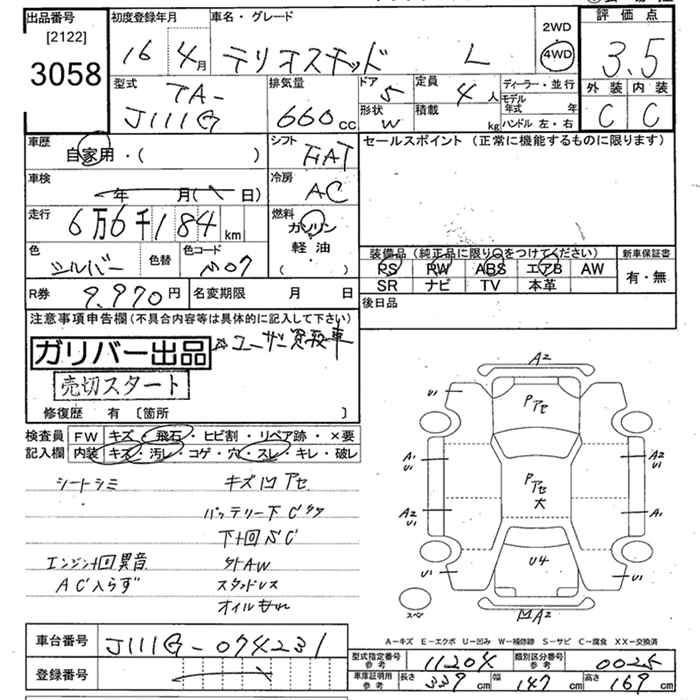 出品番号
[2122]
3058
初度登録年月
16年4月
車名・グレード
テリオスキッド L
2WD
4WD
評価点
3.5
外装 内装
C C
型式
TA-
J111G
排気量
660cc
ドア
5
形状
W
定員
4人
積載
kg
ディーラー・並行
モデル年式 年
ハンドル 左・右
車歴
自家用・( )
シフト
FAT
セールスポイント (正常に機能するものに限ります)
車検
年 月( 日)
冷房
AC
走行
6万6千184km
燃料
ガソリン
軽油・
( )
色
シルバー
色替
色コード
装備品(純正品に限り○をつけてください)
PS PW ABS エアB AW
SR ナビ TV 本革
新車保証書
有・無
R券
9.970円
名変期限 月 日
後日品
注意事項申告欄(不具合内容等は具体的に記入して下さい)
ガリバー出品
☆ユーザー買取車
売切スタート
修復歴 有 〔箇所 〕
検査員
記入欄
FW キズ・飛石・ヒビ割・リペア跡・×要
内装 キズ・汚レ・コゲ・穴・スレ・キレ・破レ
シートシミ
キズ凹アセ
バッテリー下Cタタ
下十回SC
エンジン十回異音
外AW
AC入らず
スタッドレス
オイルもれ
A2
U1
Pアセ
A1
U1
A2
U1
Pアセ
大
A2
U1
A1
U1
U4
U1
スペア
凹A2
A-キズ E-エクボ U-凹み W-補修跡 S-サビ C-腐食 XX-交換済
車台番号
J111G-074231
登録番号
型式指定番号
参考
11204
類別区分番号
参考
0025
車庫証明用
参考
長さ
339cm
幅
147cm
高さ
169cm